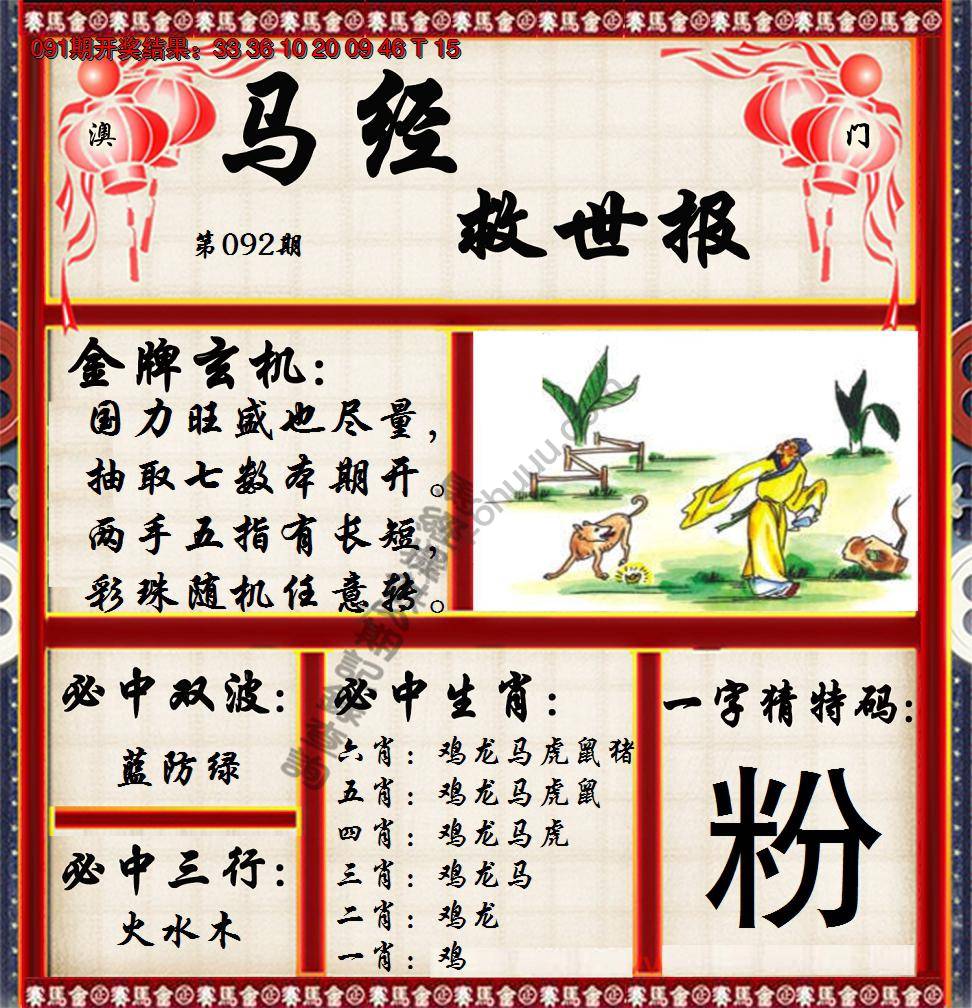 091期开奖结果：33 36 10 20 09 46 T 15
澳
门
马经
救世报
第092期
金牌玄机：
国力旺盛也尽量，
抽取七数本期开。
两手五指有长短，
彩珠随机任意转。
必中双波：
蓝防绿
必中三行：
火水木
必中生肖：
六肖：鸡龙马虎鼠猪
五肖：鸡龙马虎鼠
四肖：鸡龙马虎
三肖：鸡龙马
二肖：鸡龙
一肖：鸡
一字猜特码：
粉